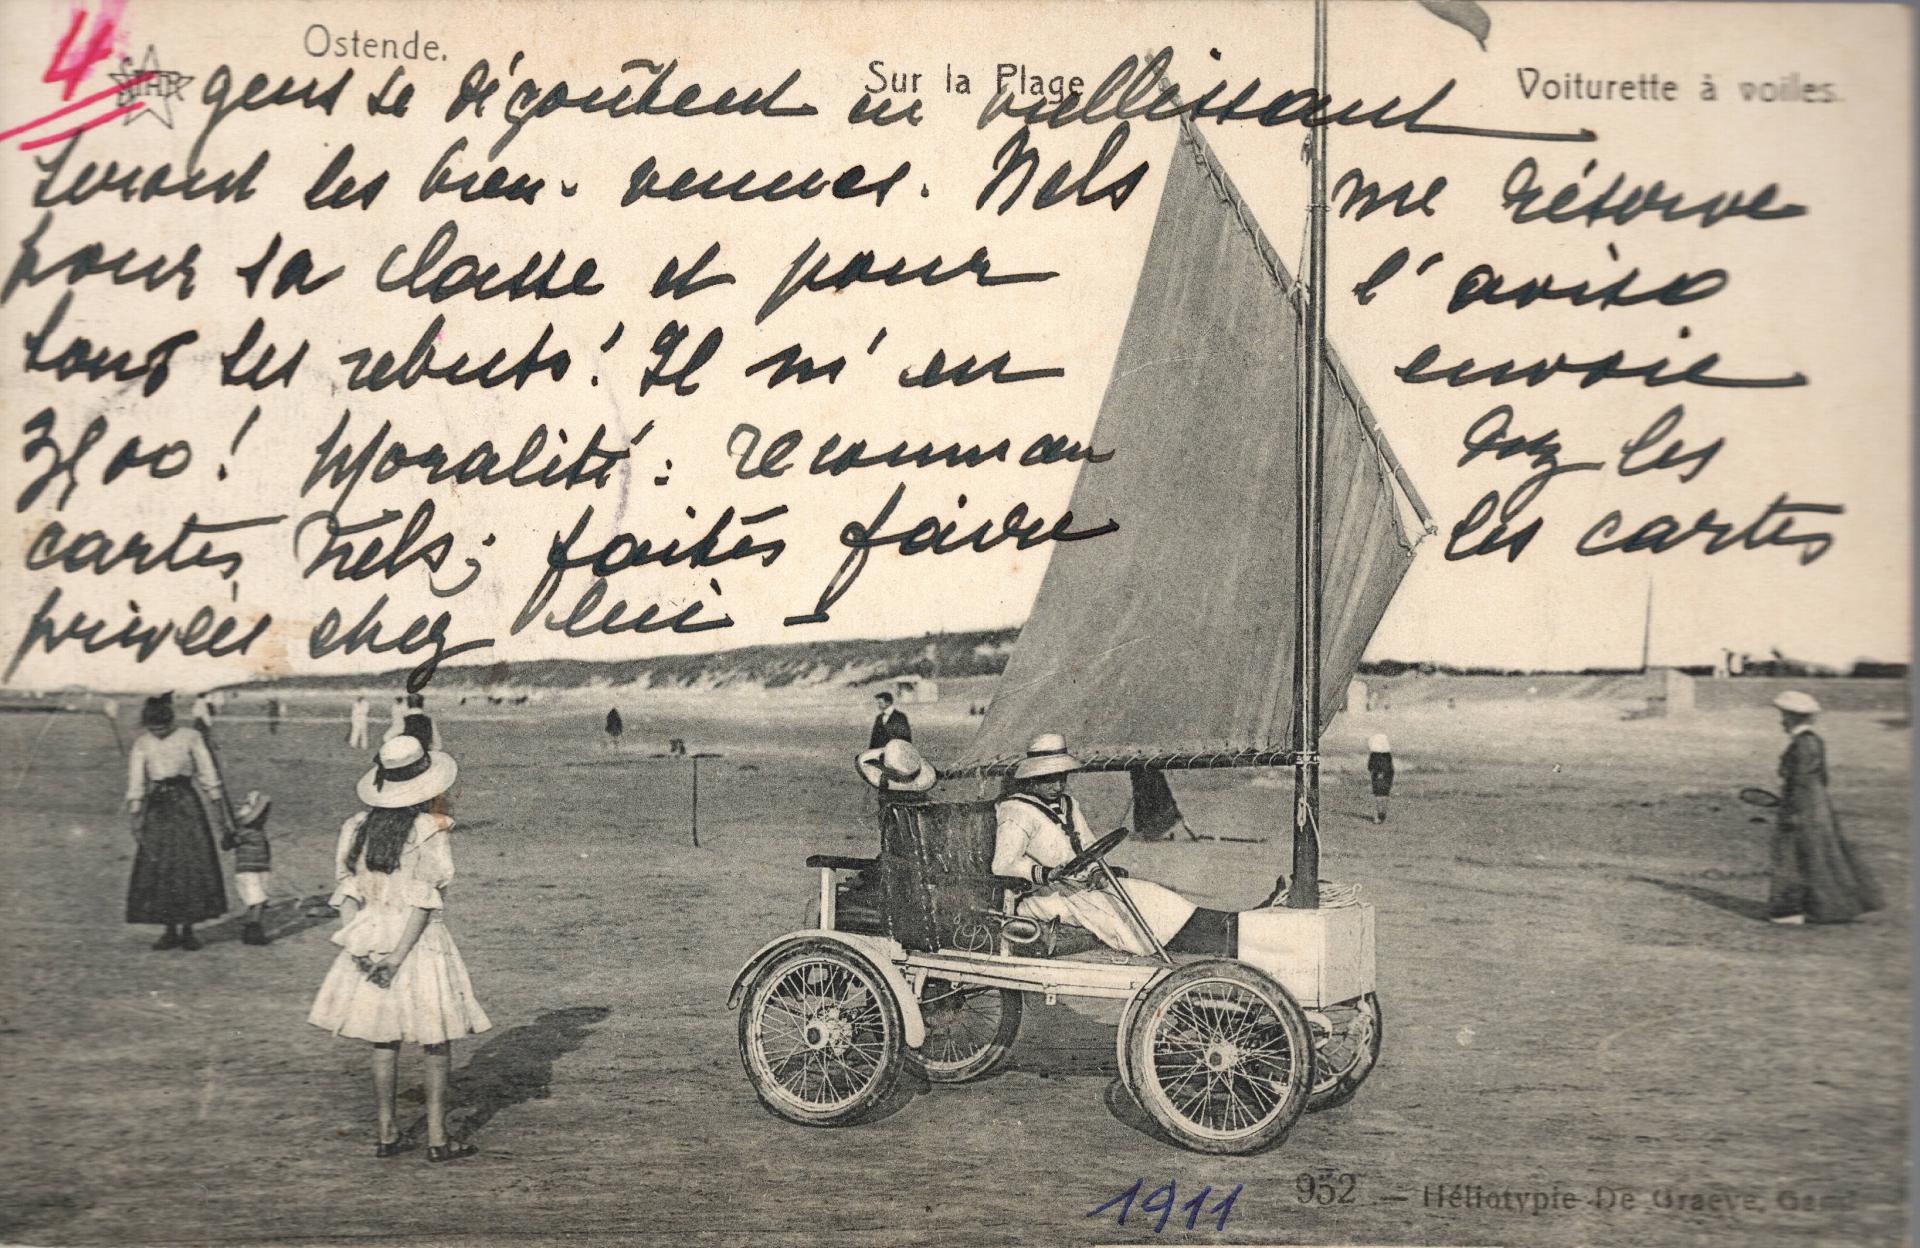 4
Ostende.
Sur la Plage
Voiturette à voiles.
STAR
gens se dégoûtent en vieillissant
seront les bien-venues. Nels me réserve
pour sa classe et pour l'aviso
tous ses rebuts! Il m'en envoie
3500! Moralité: recommandez les
cartes Nels; faites faire les cartes
privées chez lui
1911
952 — Héliotypie De Graeve, Gand